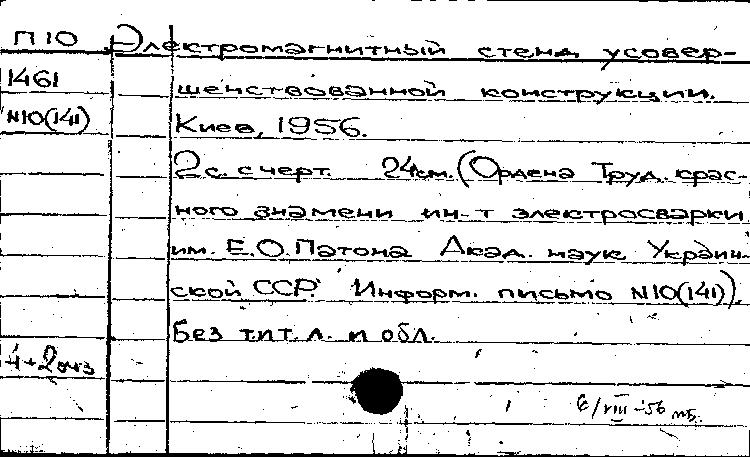 П10 Электромагнитный стенд усовер-
1461 шенствованной конструкции.
N10(141) Киев, 1956.
2с. с черт. 24см. (Ордена Труд. крас-
ного знамени ин-т электросварки
им. Е.О.Патона Акад. наук Украин-
ской ССР. Информ. письмо N10(141)).
Без тит. л. и обл.
4+2 экз
6/VIII-56